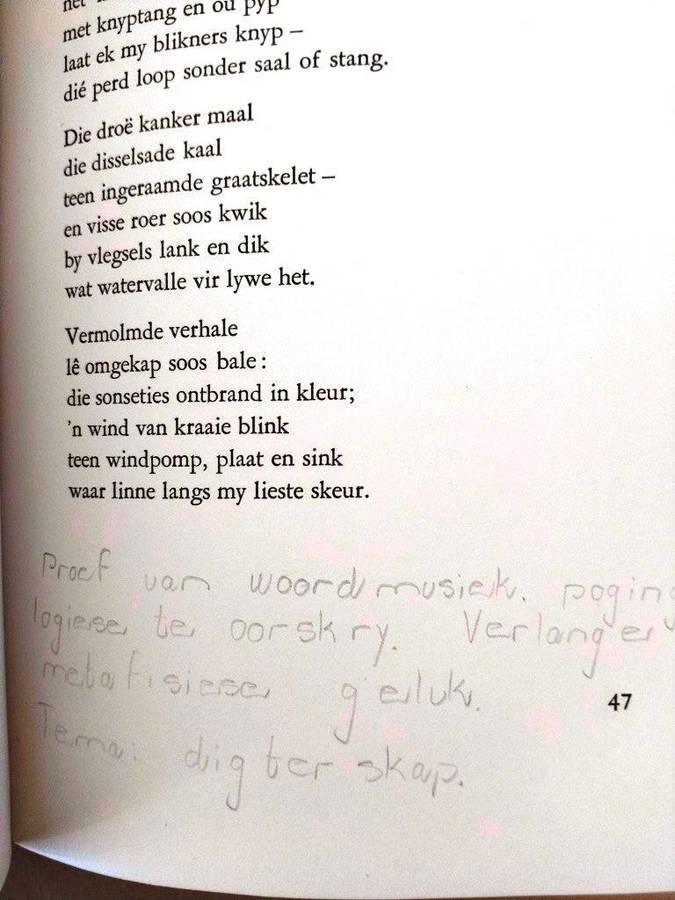 met knyptang en ou pyp
laat ek my blikners knyp –
dié perd loop sonder saal of stang.
Die droë kanker maal
die disselsade kaal
teen ingeraamde graatskelet –
en visse roer soos kwik
by vlegsels lank en dik
wat watervalle vir lywe het.
Vermolmde verhale
lê omgekap soos bale:
die sonseties ontbrand in kleur;
'n wind van kraaie blink
teen windpomp, plaat en sink
waar linne langs my lieste skeur.
Proef van woordmusiek. poging
logiese te oorskry. Verlange
metafisiese geluk.
47
Tema: digterskap.